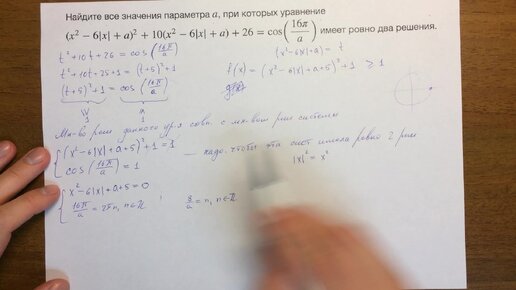 Найдите все значения параметра a, при которых уравнение
(x² − 6|x| + a)² + 10(x² − 6|x| + a) + 26 = cos(16π/a) имеет ровно два решения.
t² + 10t + 26 = cos(16π/a)
(x² − 6|x| + a) = t
t² + 10t + 25 + 1 = (t+5)² + 1
f(x) = (x² − 6|x| + a + 5)² + 1 ⩾ 1
(t+5)² + 1 = cos(16π/a)
1 1
Мн-во реш данного ур-я совп. с мн-вом реш системы
(x² − 6|x| + a + 5)² + 1 = 1
надо, чтобы эта сист имела ровно 2 реш
cos(16π/a) = 1
|x|² = x²
x² − 6|x| + a + 5 = 0
16π/a = 2πn, n ∈ ℤ
8/a = n, n ∈ ℤ